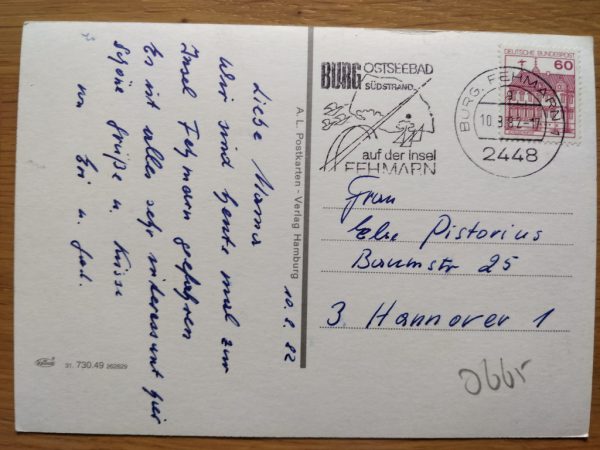 Liebe Mama
10.8.82
Wir sind heute mal zur
Insel Fehmarn gefahren
Es ist alles sehr interessant hier
Schöne Grüße u. Küsse
von
A. L. Postkarten - Verlag Hamburg
31. 730.49 262629
BURG OSTSEEBAD
SÜDSTRAND
auf der Insel
FEHMARN
BURG, FEHMARN 1
a
10.8.82-17
2448
DEUTSCHE BUNDESPOST
60
Frau
Pistorius
Baumstr 25
3. Hannover 1